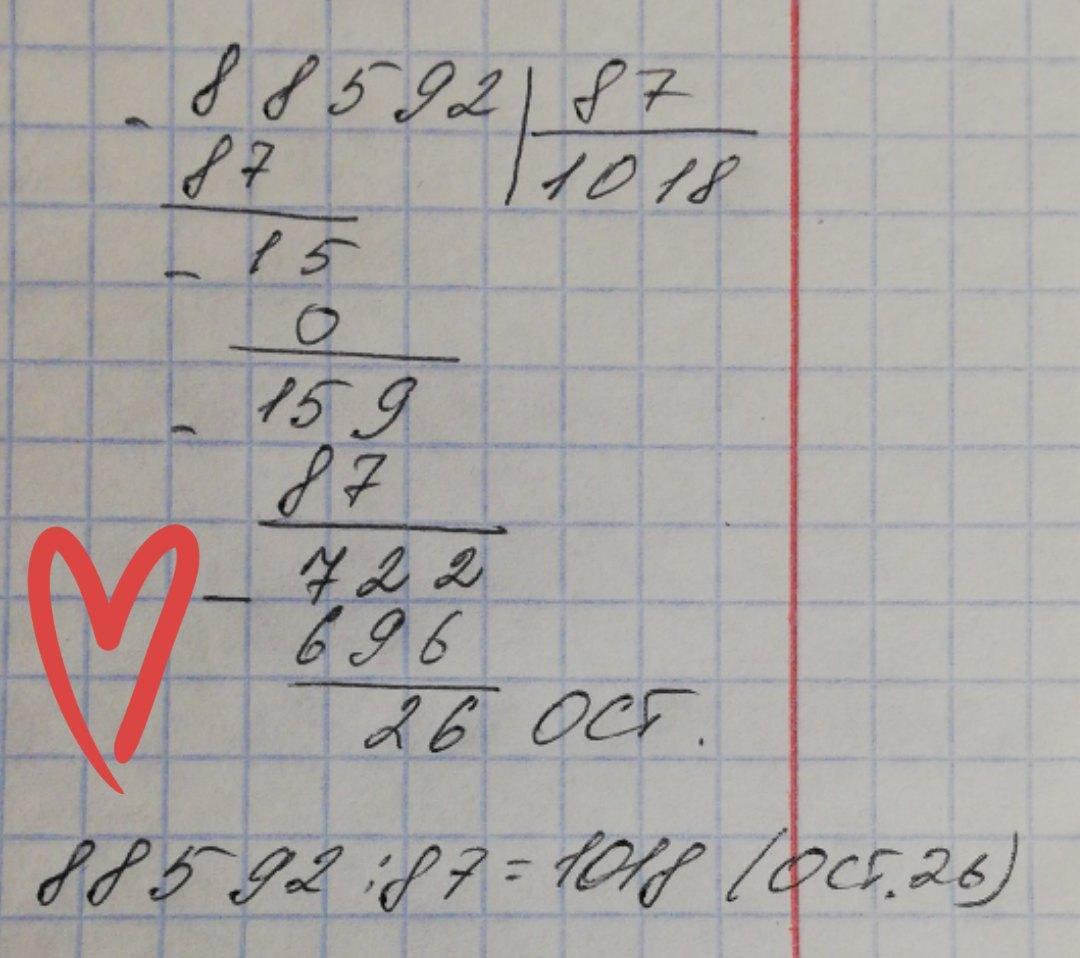 - 88592 | 87
87 1018
- 15
0
- 159
87
- 722
696
26 ОСТ.
88592 : 87 = 1018 (ОСТ. 26)